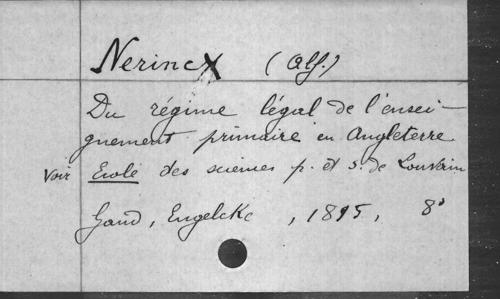 Nerincx (Alf.)
Du régime légal de l'ensei-
gnement primaire en Angleterre
voir Ecole des sciences p. et s. de Louvain
Gand, Engelcke, 1895, 8°